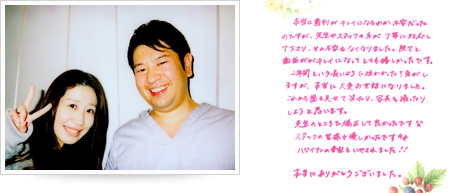 本当に歯列がキレイになるのか不安だった
のですが、先生やスタッフの方が丁寧に対応し
て下さり、その不安もなくなりました。無事に
歯並びがキレイになってとても嬉しかったです。
2年間という長いように短かかった!気がし
ますが、本当に大変お世話になりました。
これから歯を見せて笑ったり、写真も撮ったり
しようと思います。
先生のところで矯正して良かったです
スタッフの皆様も優しかったです
ハワイアンの音楽もいやされました!!
本当にありがとうございました。